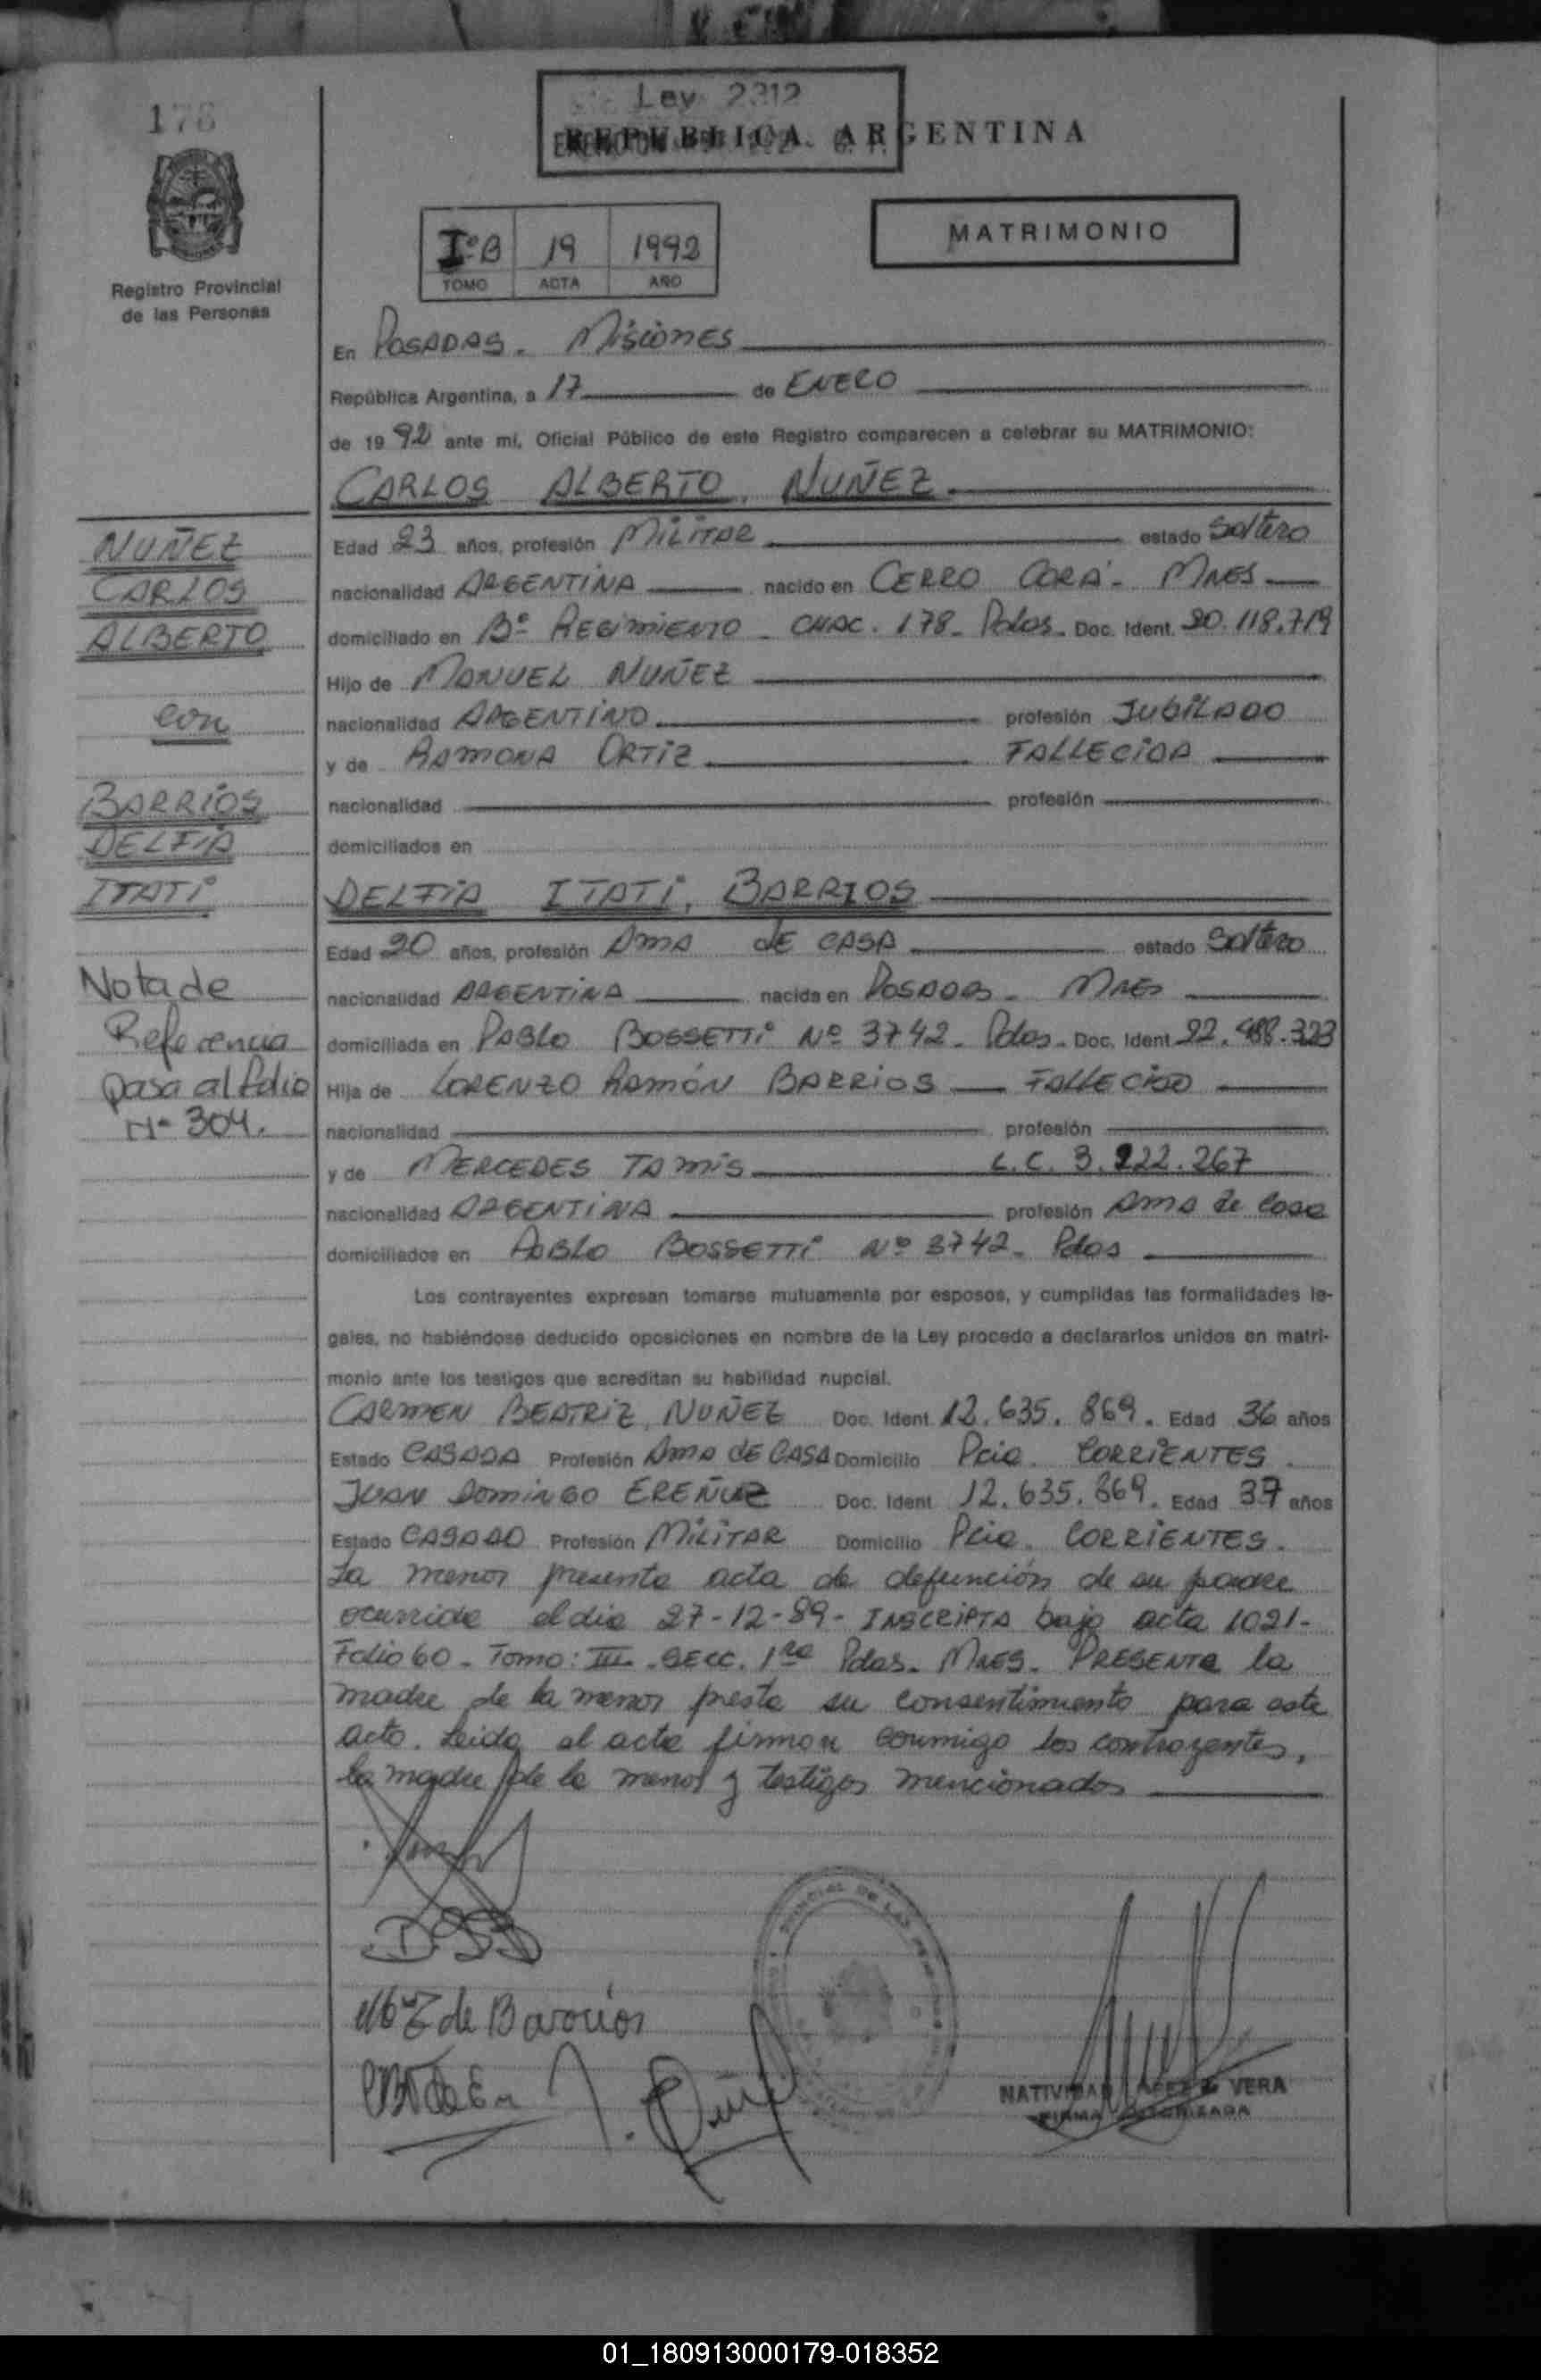 178
Ley 2312
REPUBLICA ARGENTINA
Registro Provincial
de las Personas
MATRIMONIO
IºB 19 1992
TOMO ACTA AÑO
En POSADAS - MISIONES
República Argentina, a 17 de ENERO
de 1992 ante mi, Oficial Público de este Registro comparecen a celebrar su MATRIMONIO:
CARLOS ALBERTO, NUÑEZ
Edad 23 años, profesión MILITAR estado Soltero
nacionalidad ARGENTINA nacido en CERRO CORÁ - MNES
domiciliado en Bº REGIMIENTO - CHAC. 178 - Pdas - Doc. Ident. 20.118.719
Hijo de MANUEL NUÑEZ
nacionalidad ARGENTINO profesión JUBILADO
y de RAMONA ORTIZ FALLECIDA
nacionalidad profesión
domiciliados en
DELFIA ITATI, BARRIOS
Edad 20 años, profesión AMA de CASA estado Soltero
nacionalidad ARGENTINA nacida en POSADAS - MNES
domiciliada en PABLO BOSSETTI Nº 3742 - Pdas - Doc. Ident 22.488.323
Hija de LORENZO RAMÓN BARRIOS FALLECIDO
nacionalidad profesión
y de MERCEDES TAMIS L.C. 3.222.267
nacionalidad ARGENTINA profesión Ama de Casa
domiciliados en PABLO BOSSETTI Nº 3742 - Pdas
Los contrayentes expresan tomarse mutuamente por esposos, y cumplidas las formalidades le-
gales, no habiéndose deducido oposiciones en nombre de la Ley procedo a declararlos unidos en matri-
monio ante los testigos que acreditan su habilidad nupcial.
CARMEN BEATRIZ, NUÑEZ Doc. Ident 12.635.869. Edad 36 años
Estado CASADA Profesión AMA de CASA Domicilio Pcia. CORRIENTES.
JUAN DOMINGO EREÑUZ Doc. Ident 12.635.869. Edad 37 años
Estado CASADO Profesión MILITAR Domicilio Pcia. CORRIENTES.
La menor presenta acta de defunción de su padre
ocurrida el dia 27-12-89 - INSCRIPTA bajo acta 1021 -
Folio 60 - Tomo: III - SECC. 1ra Pdas. MNES. PRESENTE la
madre de la menor presta su consentimiento para este
acto. Leida el acta firman conmigo los contrayentes,
la madre de la menor y testigos mencionados
NUÑEZ
CARLOS
ALBERTO
con
BARRIOS
DELFIA
ITATI
Nota de
Referencia
pasa al folio
Nº 304.
de Barrios
NATIVIDAD VERA
FIRMA AUTORIZADA
01_180913000179-018352